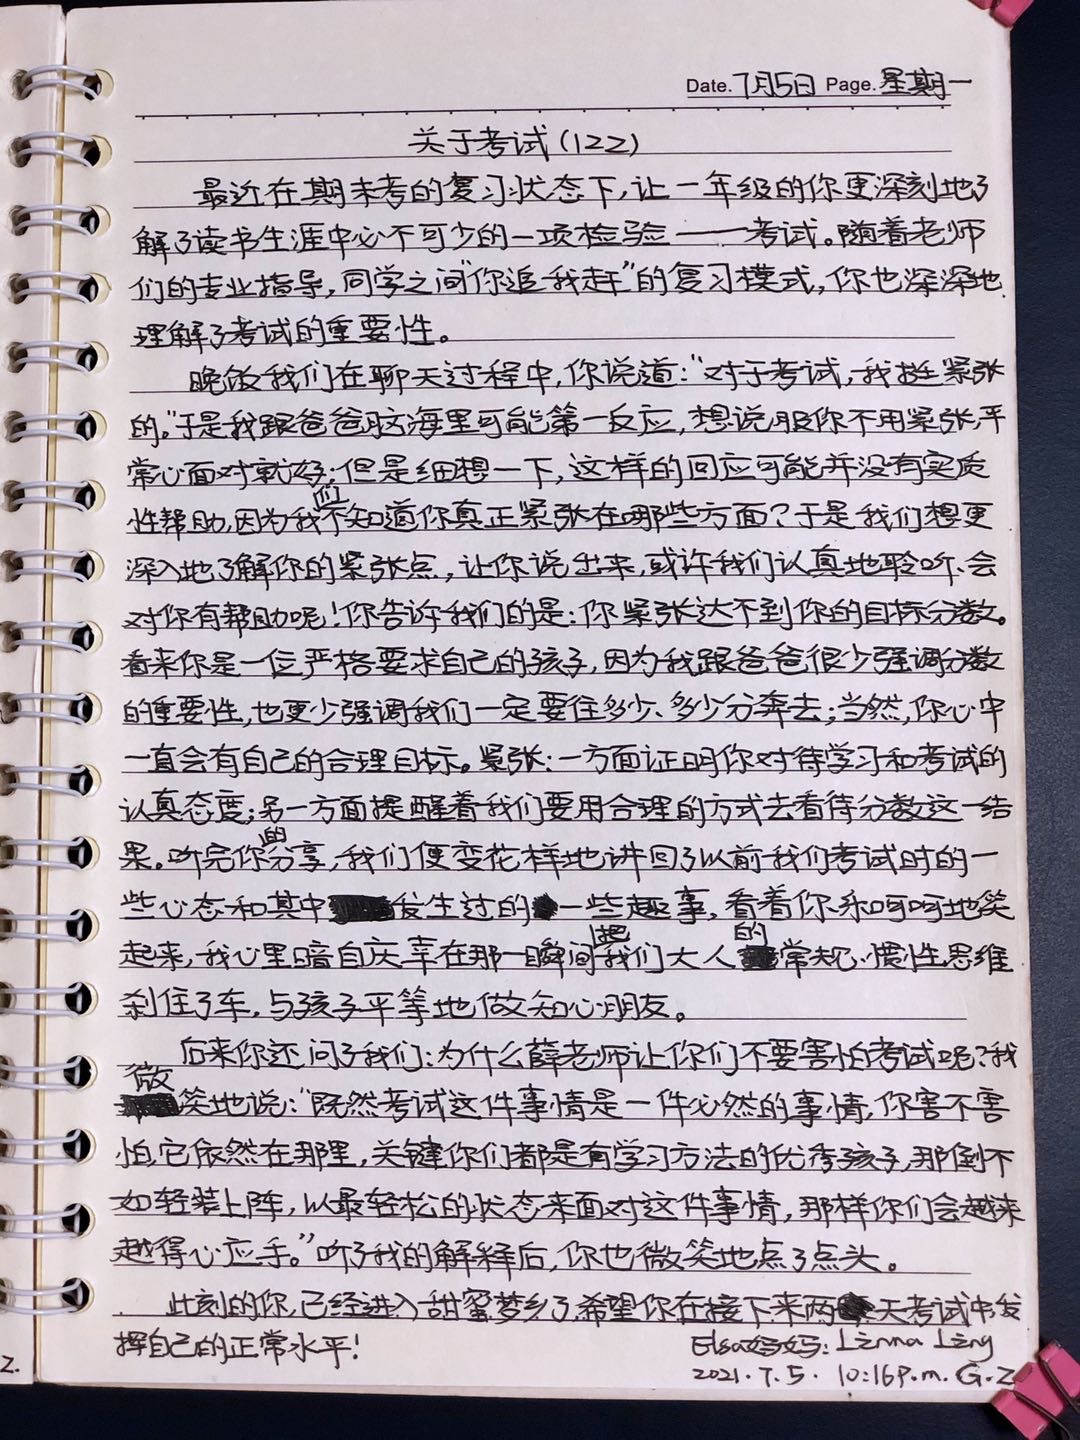 Date. 7月5日 Page. 星期一
关于考试(122)
最近在期末考的复习状态下,让一年级的你更深刻地了
解了读书生涯中必不可少的一项检验——考试。随着老师
们的专业指导,同学之间“你追我赶”的复习模式,你也深深地
理解了考试的重要性。
晚饭我们在聊天过程中,你说道:“对于考试,我挺紧张
的。”于是我跟爸爸脑海里可能第一反应,想说服你不用紧张,平
常心面对就好;但是细想一下,这样的回应可能并没有实质
性帮助,因为我们不知道你真正紧张在哪些方面?于是我们想更
深入地了解你的紧张点,让你说出来,或许我们认真地聆听、会
对你有帮助呢!你告诉我们的是:你紧张达不到你的目标分数。
看来你是一位严格要求自己的孩子,因为我跟爸爸很少强调分数
的重要性,也更少强调我们一定要往多少、多少分奔去;当然,你心中
一直会有自己的合理目标。紧张:一方面证明你对待学习和考试的
认真态度;另一方面提醒着我们要用合理的方式去看待分数这一结
果。听完你的分享,我们便变花样地讲回了以前我们考试时的一
些心态和其中发生过的一些趣事,看着你乐呵呵地笑
起来,我心里暗自庆幸在那一瞬间把我们大人的常规心惯性思维
刹住了车,与孩子平等地做知心朋友。
后来你还问了我们:为什么薛老师让你们不要害怕考试呢?我
微笑地说:“既然考试这件事情是一件必然的事情,你害不害
怕,它依然在那里,关键你们都是有学习方法的优秀孩子,那倒不
如轻装上阵,以最轻松的状态来面对这件事情,那样你们会越来
越得心应手。”听了我的解释后,你也微笑地点了点头。
此刻的你,已经进入甜蜜梦乡了,希望你在接下来两天考试中发
挥自己的正常水平!
Elsa妈妈: Linna Ling
2021.7.5. 10:16P.m. G.Z